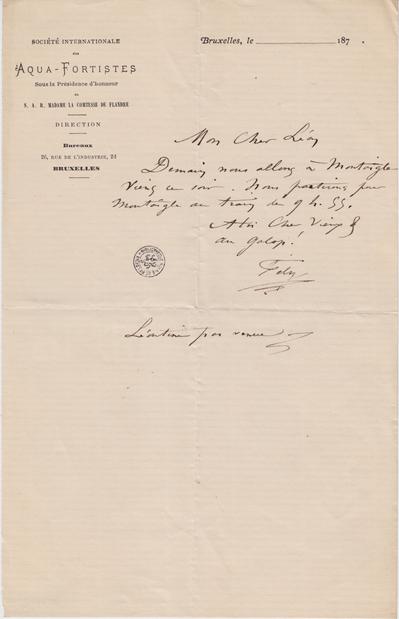 SOCIÉTÉ INTERNATIONALE
des
AQUA-FORTISTES
Sous la Présidence d'honneur
de
S. A. R. MADAME LA COMTESSE DE FLANDRE
DIRECTION
Bureaux
26, RUE DE L'INDUSTRIE, 24
BRUXELLES
Bruxelles, le 187 .
Mon Cher Léon
Demain nous allons à Montaigle
Viens ce soir. Nous partons pour
Montaigle au train de 9 h. 55.
A toi Cher Vieux &
au galop!
Fély
Léontine pas venue